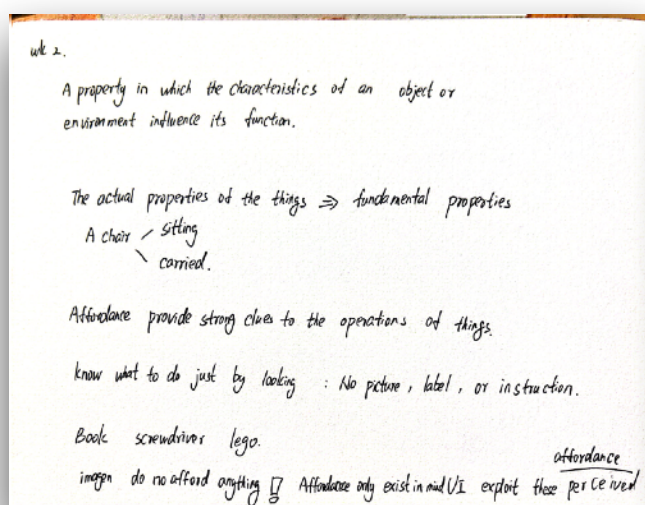 wk 2.
A property in which the characteristics of an object or
environment influence its function.
The actual properties of the things => fundamental properties
A chair sitting
carried.
Affordance provide strong clues to the operations of things.
know what to do just by looking : No picture, label, or instruction.
Book screwdriver lego.
affordance
imagen do no afford anything ! Affordance only exist in mind UI exploit these perceived